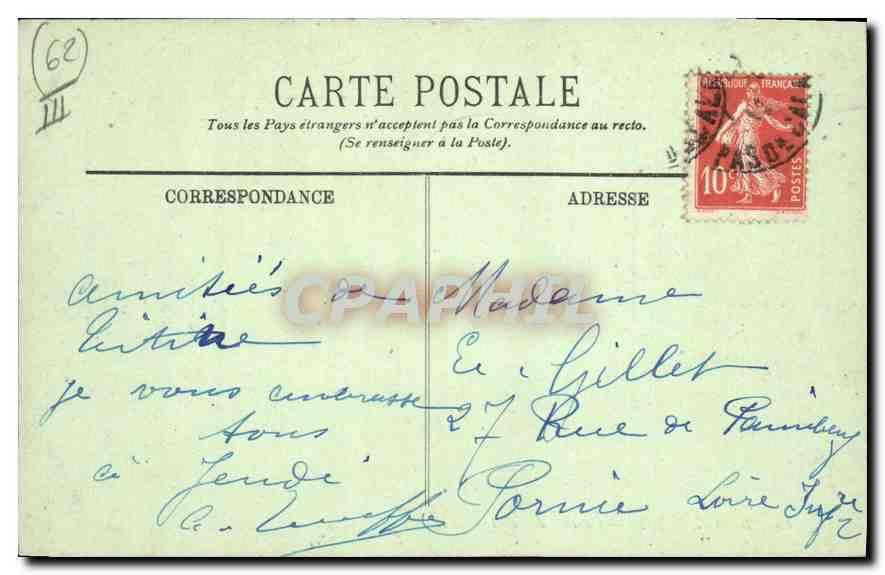 62
III
CARTE POSTALE
Tous les Pays étrangers n'acceptent pas la Correspondance au recto.
(Se renseigner à la Poste).
REPUBLIQUE FRANÇAISE
10c
POSTES
PAS DE CALA
CORRESPONDANCE
ADRESSE
CPAPHIL
amitiés de
Titine
je vous embrasse
tous
à Jeudi
Madame
E. Gillet
27 Rue de
Pornic Loire Infre